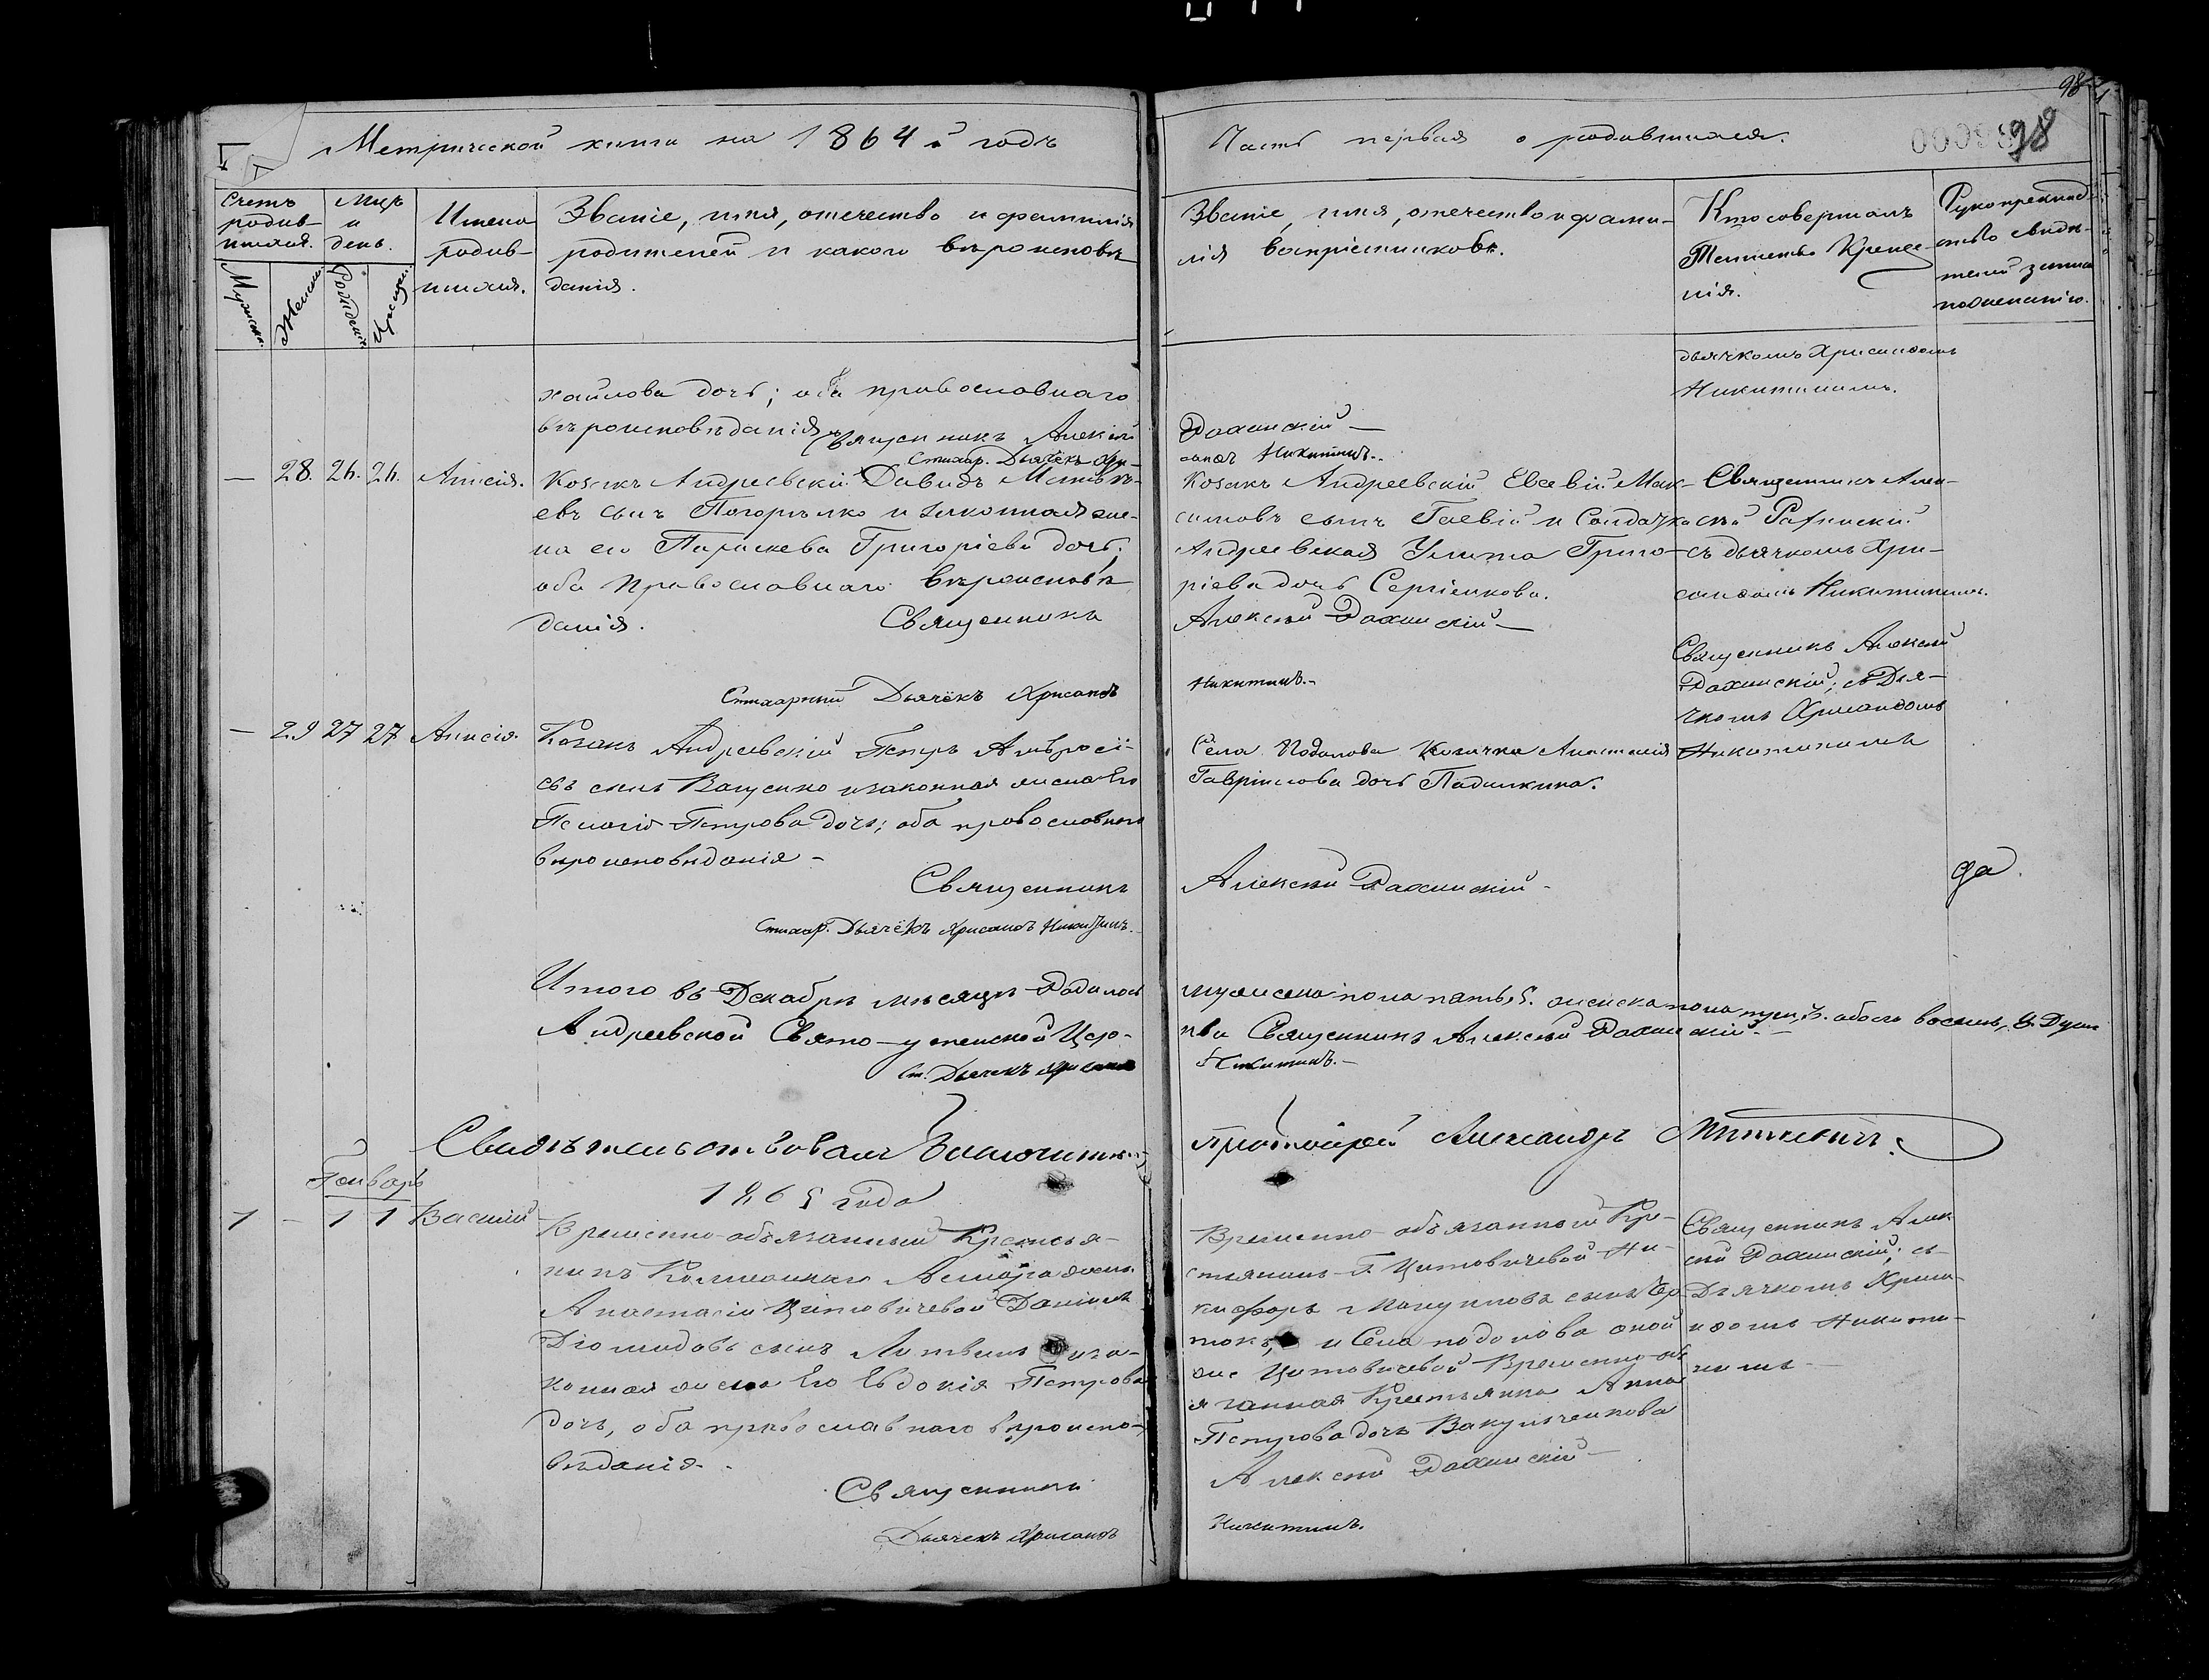 98
Метрической книги на 1864й годъ
Часть первая о родившихся.
98
Счетъ родив-шихся.
Мцъ и день.
Имена родив-шихся.
Званіе, имя, отечество и фамилія
родителей и какого вѣроисповѣ-
данія.
Званіе, имя, отечество и фами-
лія воспріемниковъ.
Кто совершалъ
Таинство Креще-
нія.
Рукоприклад-
ство свидѣ-
телей записи
по желанію.
Мужеск.
Женск.
Рожденія
Крещен.
хайлова дочь; оба православнаго
вѣроисповѣданія Священникъ Алексій
Стихар. Дьячёкъ Хри-
Рахинскій
санѳъ Никитинъ.
дьячкомъ Хрисанѳомъ
Никитинымъ.
— 28. 26. 26. Анисія.
Козакъ Андреевскій Давидъ Матвѣ-
евъ сынъ Погорѣлко и законная же-
на его Параскева Григоріева дочь;
оба православнаго вѣроисповѣ
данія. Священникъ
Стихарный Дьячёкъ Хрисанѳъ
Козакъ Андреевскій Евсевій Мак-
симовъ сынъ Гаевій и Солдачка
Андреевская Улита Григо-
ріева дочь Сергіенкова.
Алексій Рахинскій —
Никитинъ. -
Священникъ Алек-
сѣй Рахинскій
съ дьячкомъ Хри-
санѳомъ Никитинымъ.
— 29 27 27 Анисія.
Козакъ Андреевскій Петръ Амвросі-
евъ сынъ Ващенко и законная жена его
Пелагія Петрова дочь; оба православнаго
вѣроисповѣданія -
Священникъ
Стихар. Дьячёкъ Хрисанѳъ Никитинъ.
Села Подолова Козачка Анастасія
Гавріилова дочь Падалкина.
Алексій Рахинскій -
Священникъ Алексій
Рахинскій; съ Дья-
чкомъ Хрисанѳомъ
Никитинымъ
да.
Итого въ Декабрѣ мѣсяцѣ Родилось
мужеска пола пять, 5. женска пола три, 3. обоего восемь, 8. Душъ
Андреевской Свято-успенской Цер-
кви Священникъ Алексій Рахинскій. -
ст. Дьячекъ Хрисанѳъ
Никитинъ. -
Свидѣтельствовалъ Благочинный
Протоіерей Александръ
1865 года
Генварь
1 - 1 1 Василій
Временно-обязанный Крестья-
нинъ
Анастасіи Цитовичевой Даніилъ
Діомидовъ сынъ Литвинъ и за-
конная жена Его Евдокія Петрова
дочь, оба православнаго вѣроиспо-
вѣданія.
Священникъ
Дьячекъ Хрисанѳъ
Временно-обязанный Кре-
стьянинъ Г. Цитовичевой Ни-
кифоръ сынъ
и Села Подолова оной
же Цитовичевой Временно-об
язанная Крестьянка Анна
Петрова дочь Вакуленкова
Алексій Рахинскій -
Никитинъ.
Священникъ Алек
сій Рахинскій; съ
Дьячкомъ Хриса-
нѳомъ Никити-
нымъ -